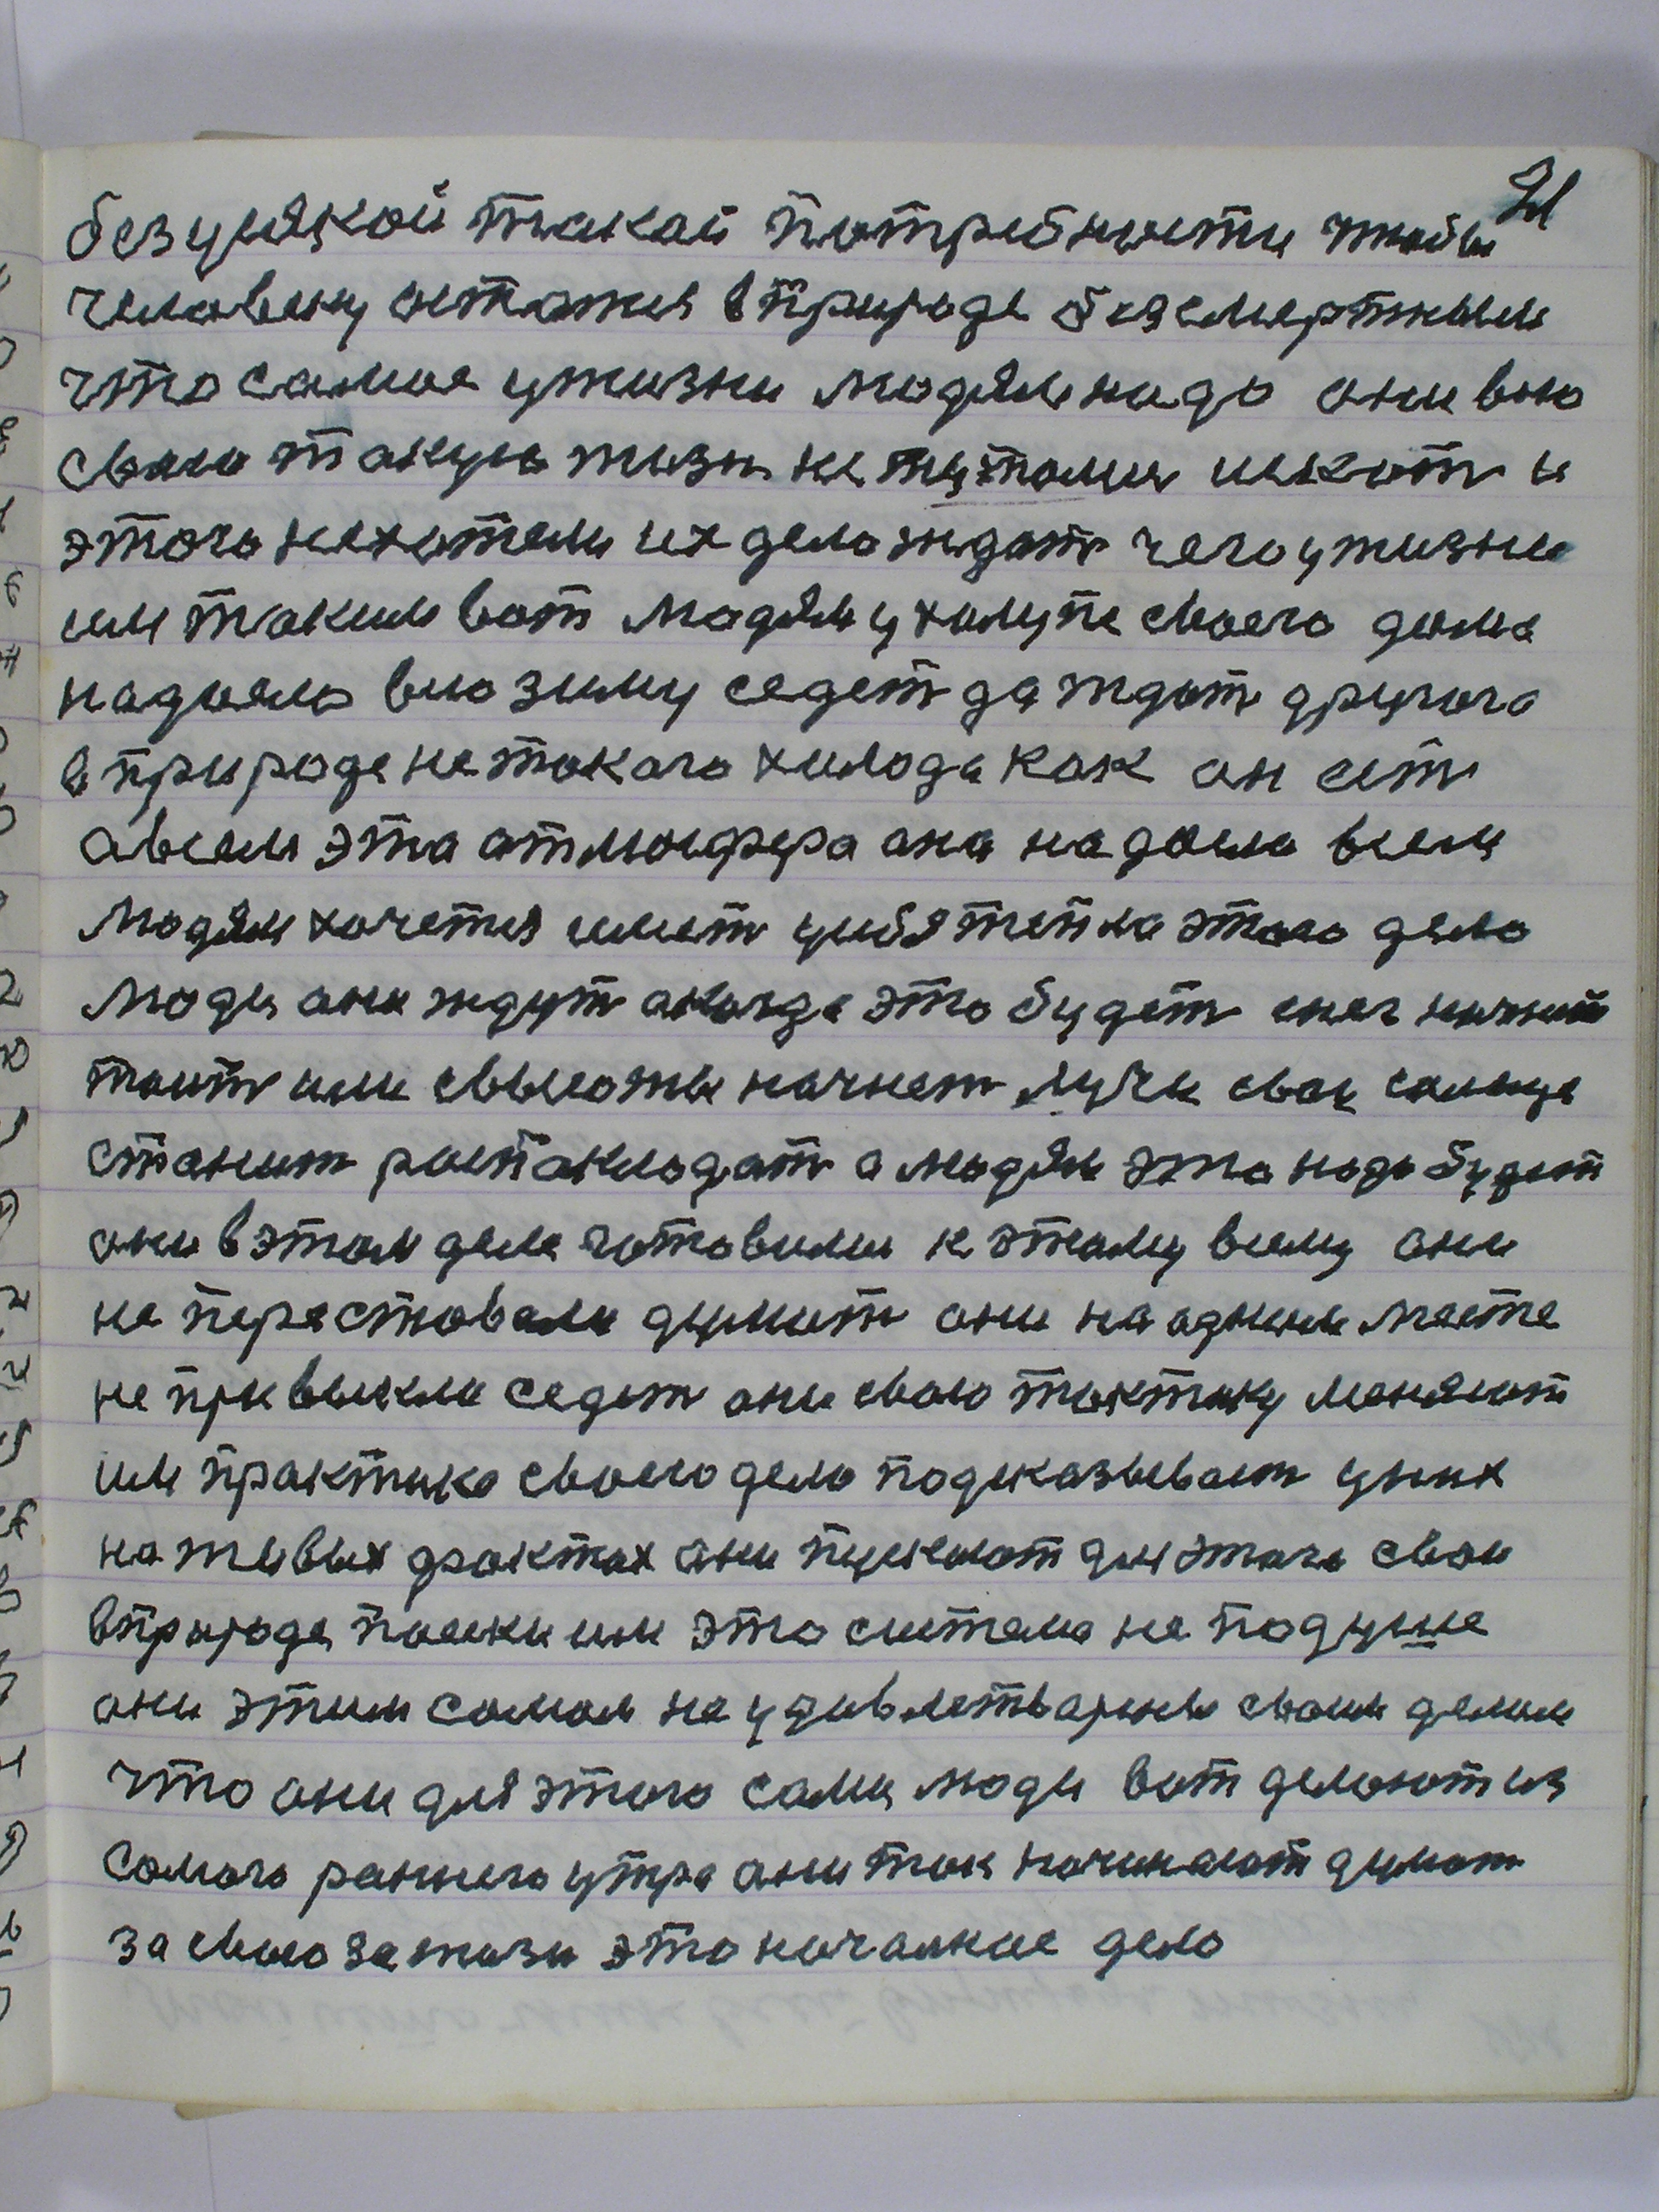 21
безуияской такай потребности чтобы
человеку остатся в природе бизсмертным
что самое ужизни людям надо они всю
свою такую жизн не тутами искат и
этого нехотели их дело ждат чего ужизни
им таким вот людям ухалупе своего дома
надоело всю зиму седет да ждат другого
в природе нетокого холода как он ест
авсем эта атмосфера она надоела всем
людям хочетия имет усибя тепла этого дело
люди они ждут акогда это будет снег начнет
таит или свысоты начнет лучи свои солнце
станит распакладат а людям это надо будет
они вэтом деле готовили к этому всему они
не перестовали думат они на адном месте
не привыкли седет они свою тактику меняют
им практика своего дела подсказывает уних
на живых фактах они пускают для этого свои
вприроде поиски им это система не подуше
они этим самом не удивлетварины своим делом
что они для этого сами люди вот делают из
самого раннего утра они так начинают думат
за свою за жизн это началное дело